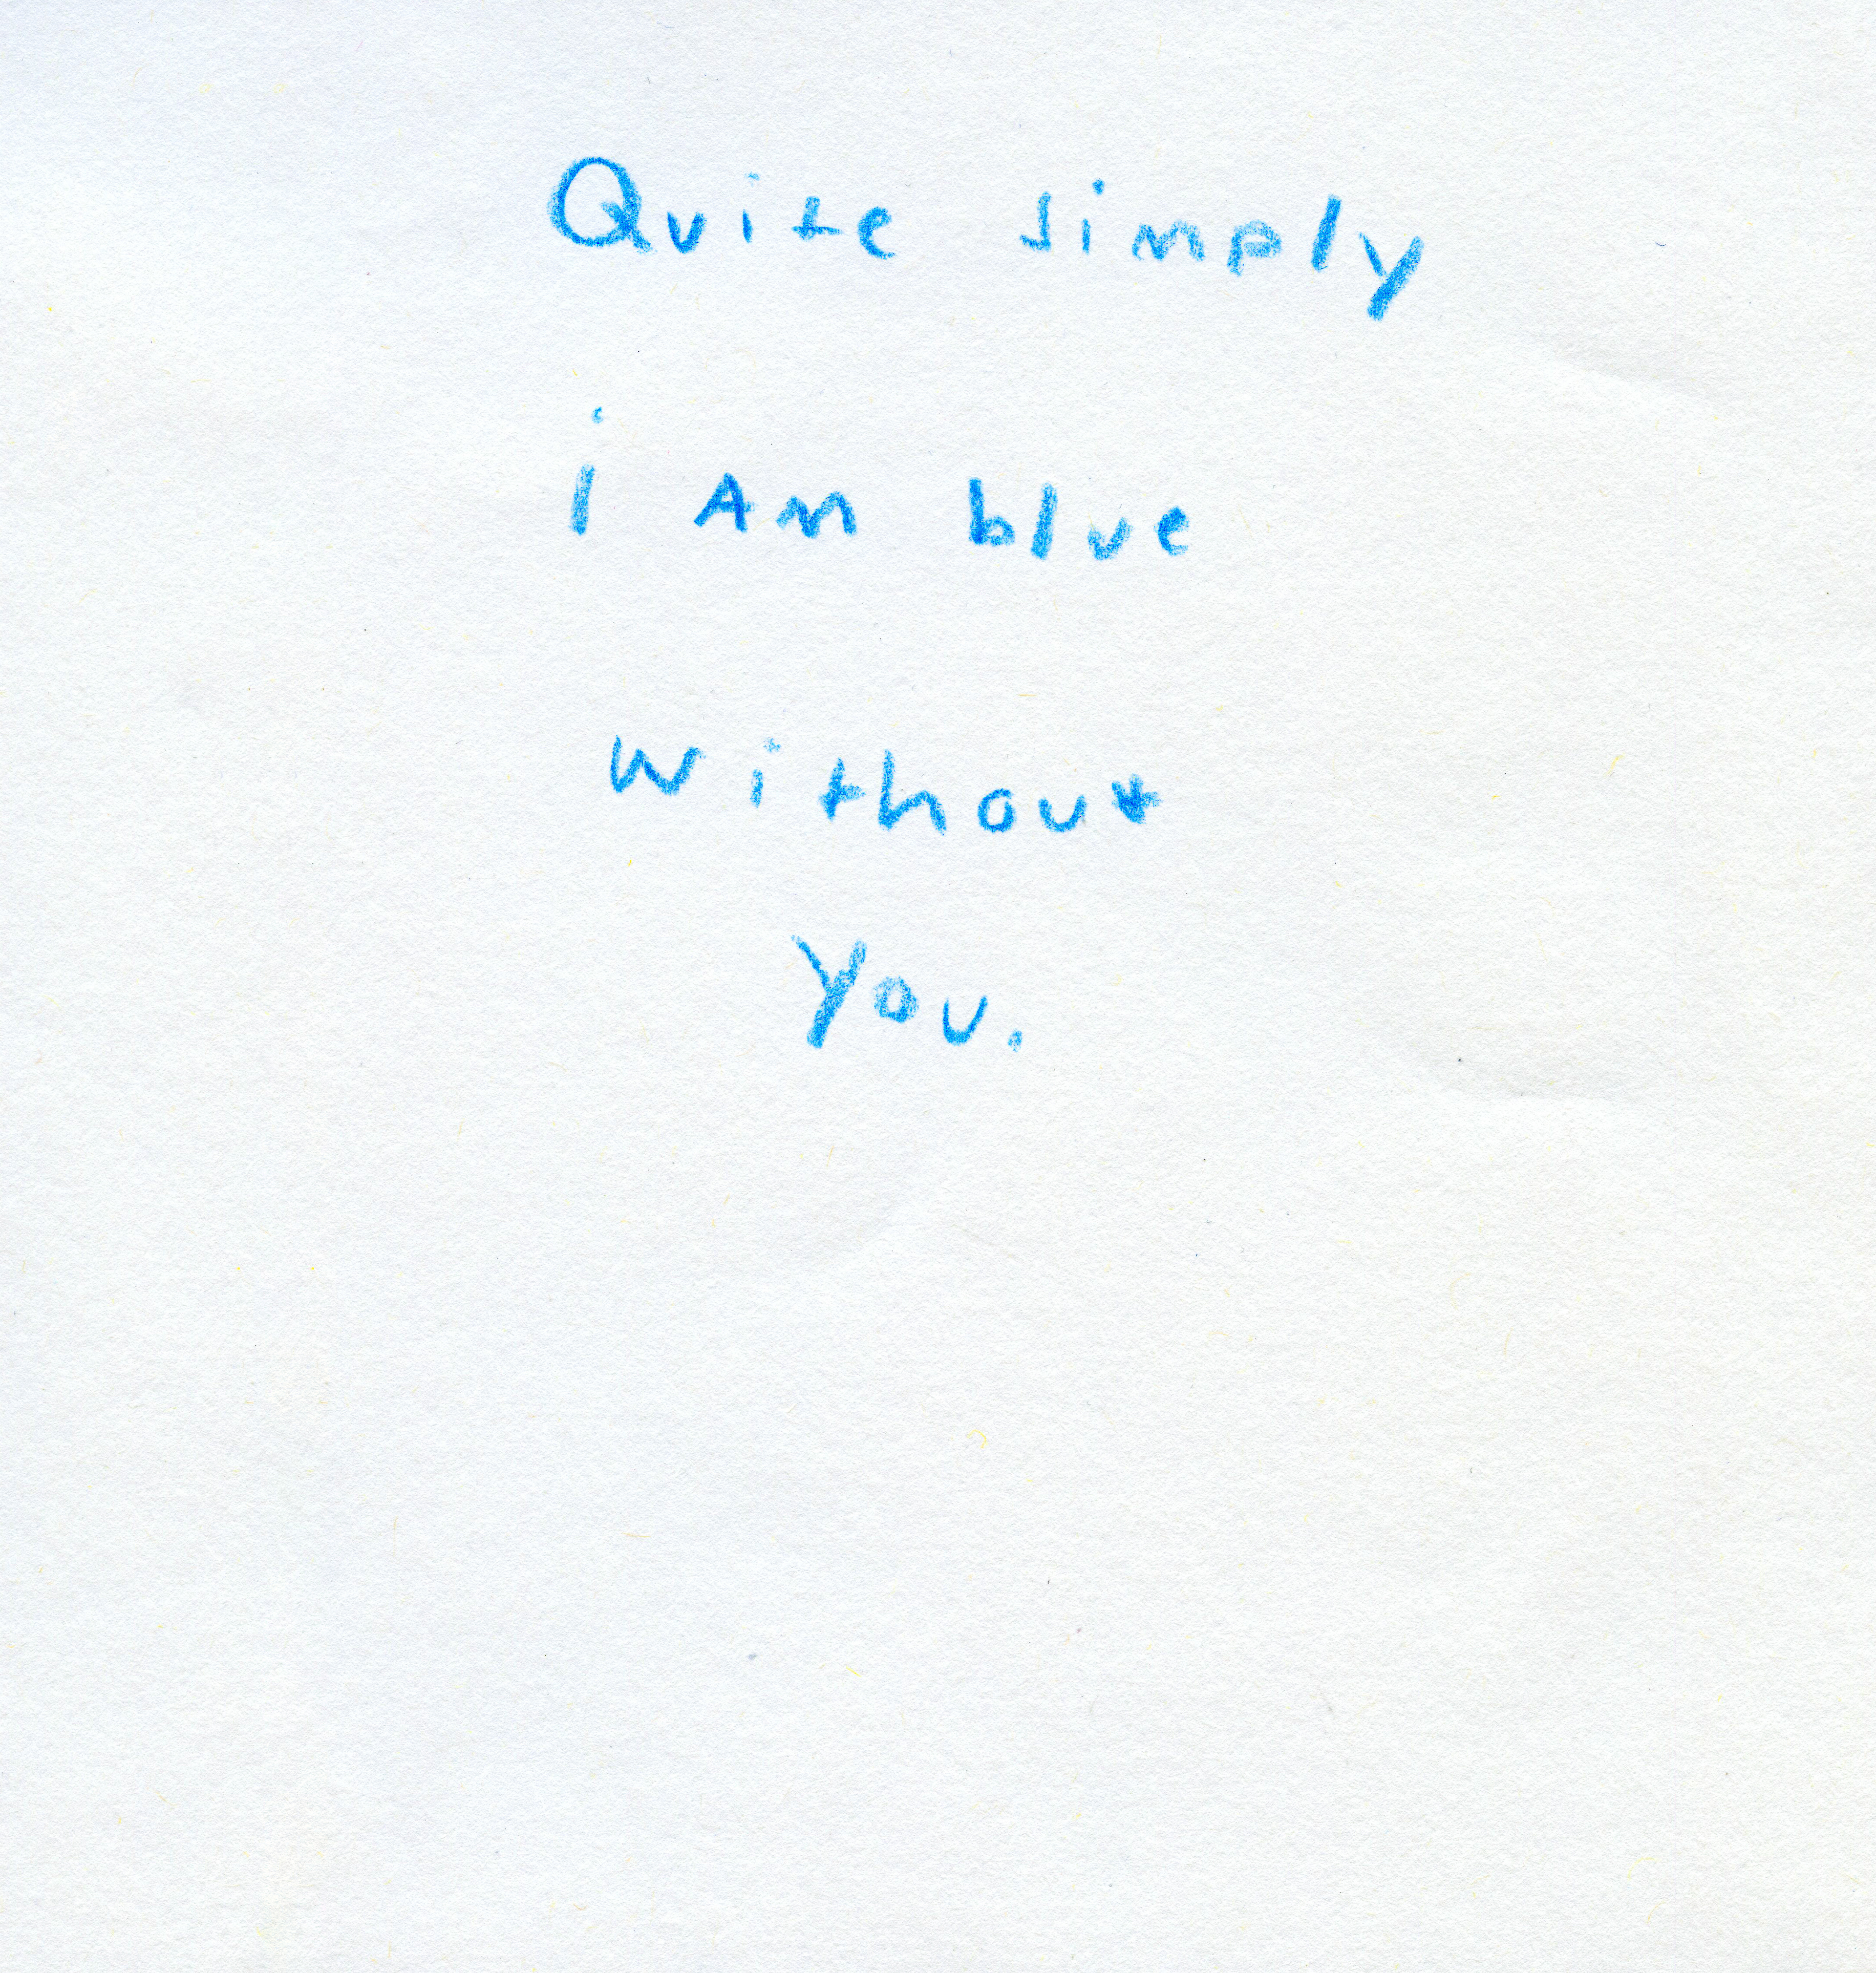 Quite simply
i Am blue
without
you.